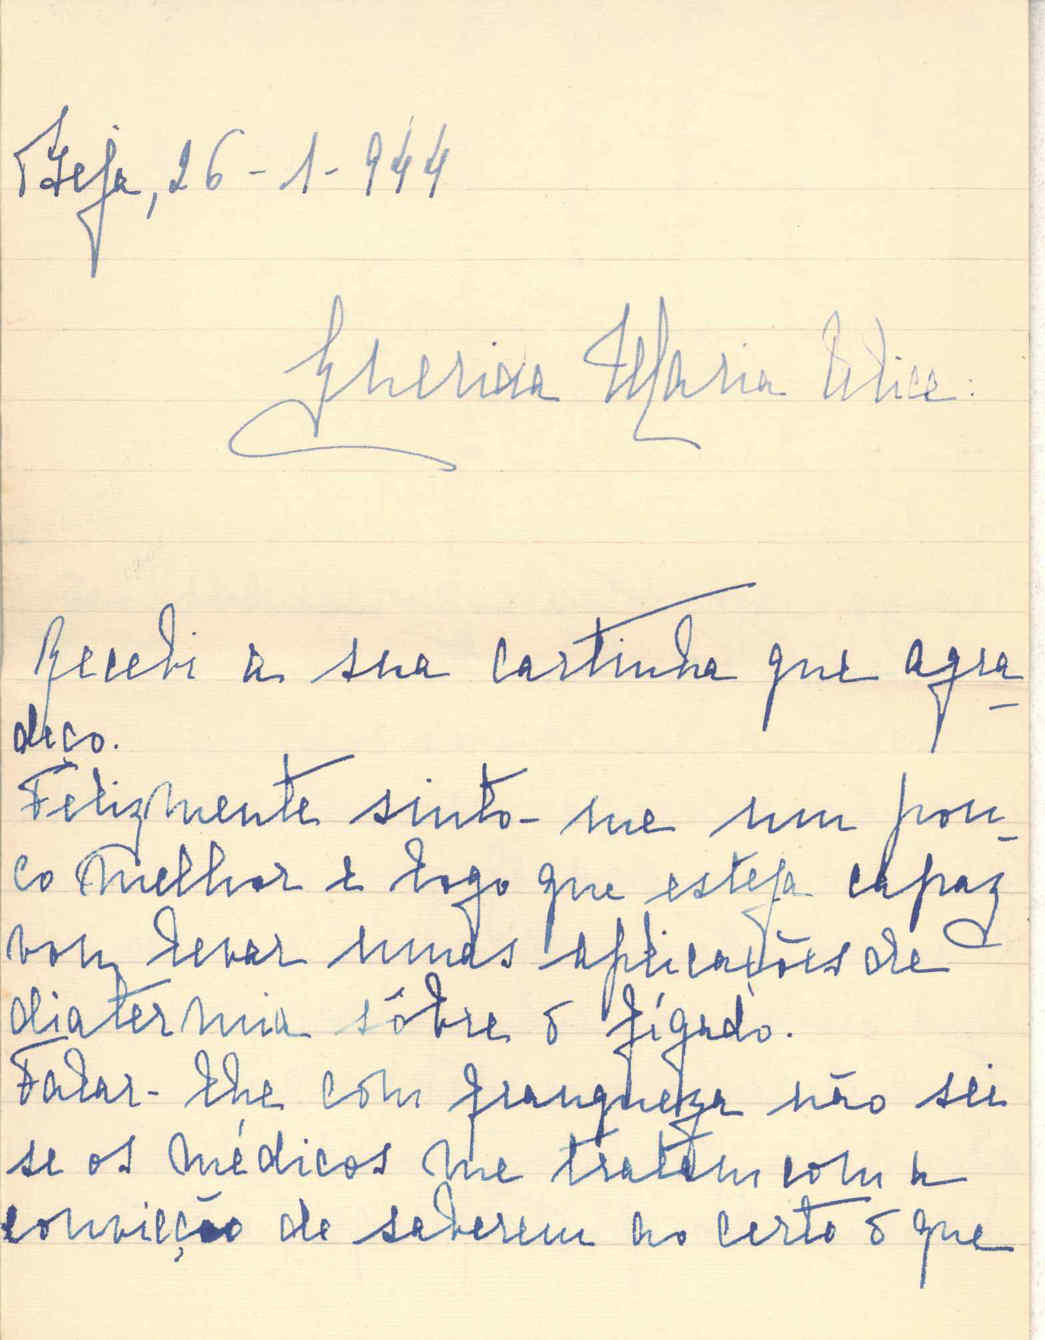 Beja, 26-1-944
Querida Maria Alice:
Recebi a sua cartinha que agra-
deço.
Felizmente sinto-me um pou-
co melhor e logo que esteja capaz
vou levar umas aplicações de
diatermia sôbre o fígado.
Falar-lhe com franqueza não sei
se os médicos me tratam com a
convicção de saberem ao certo o que